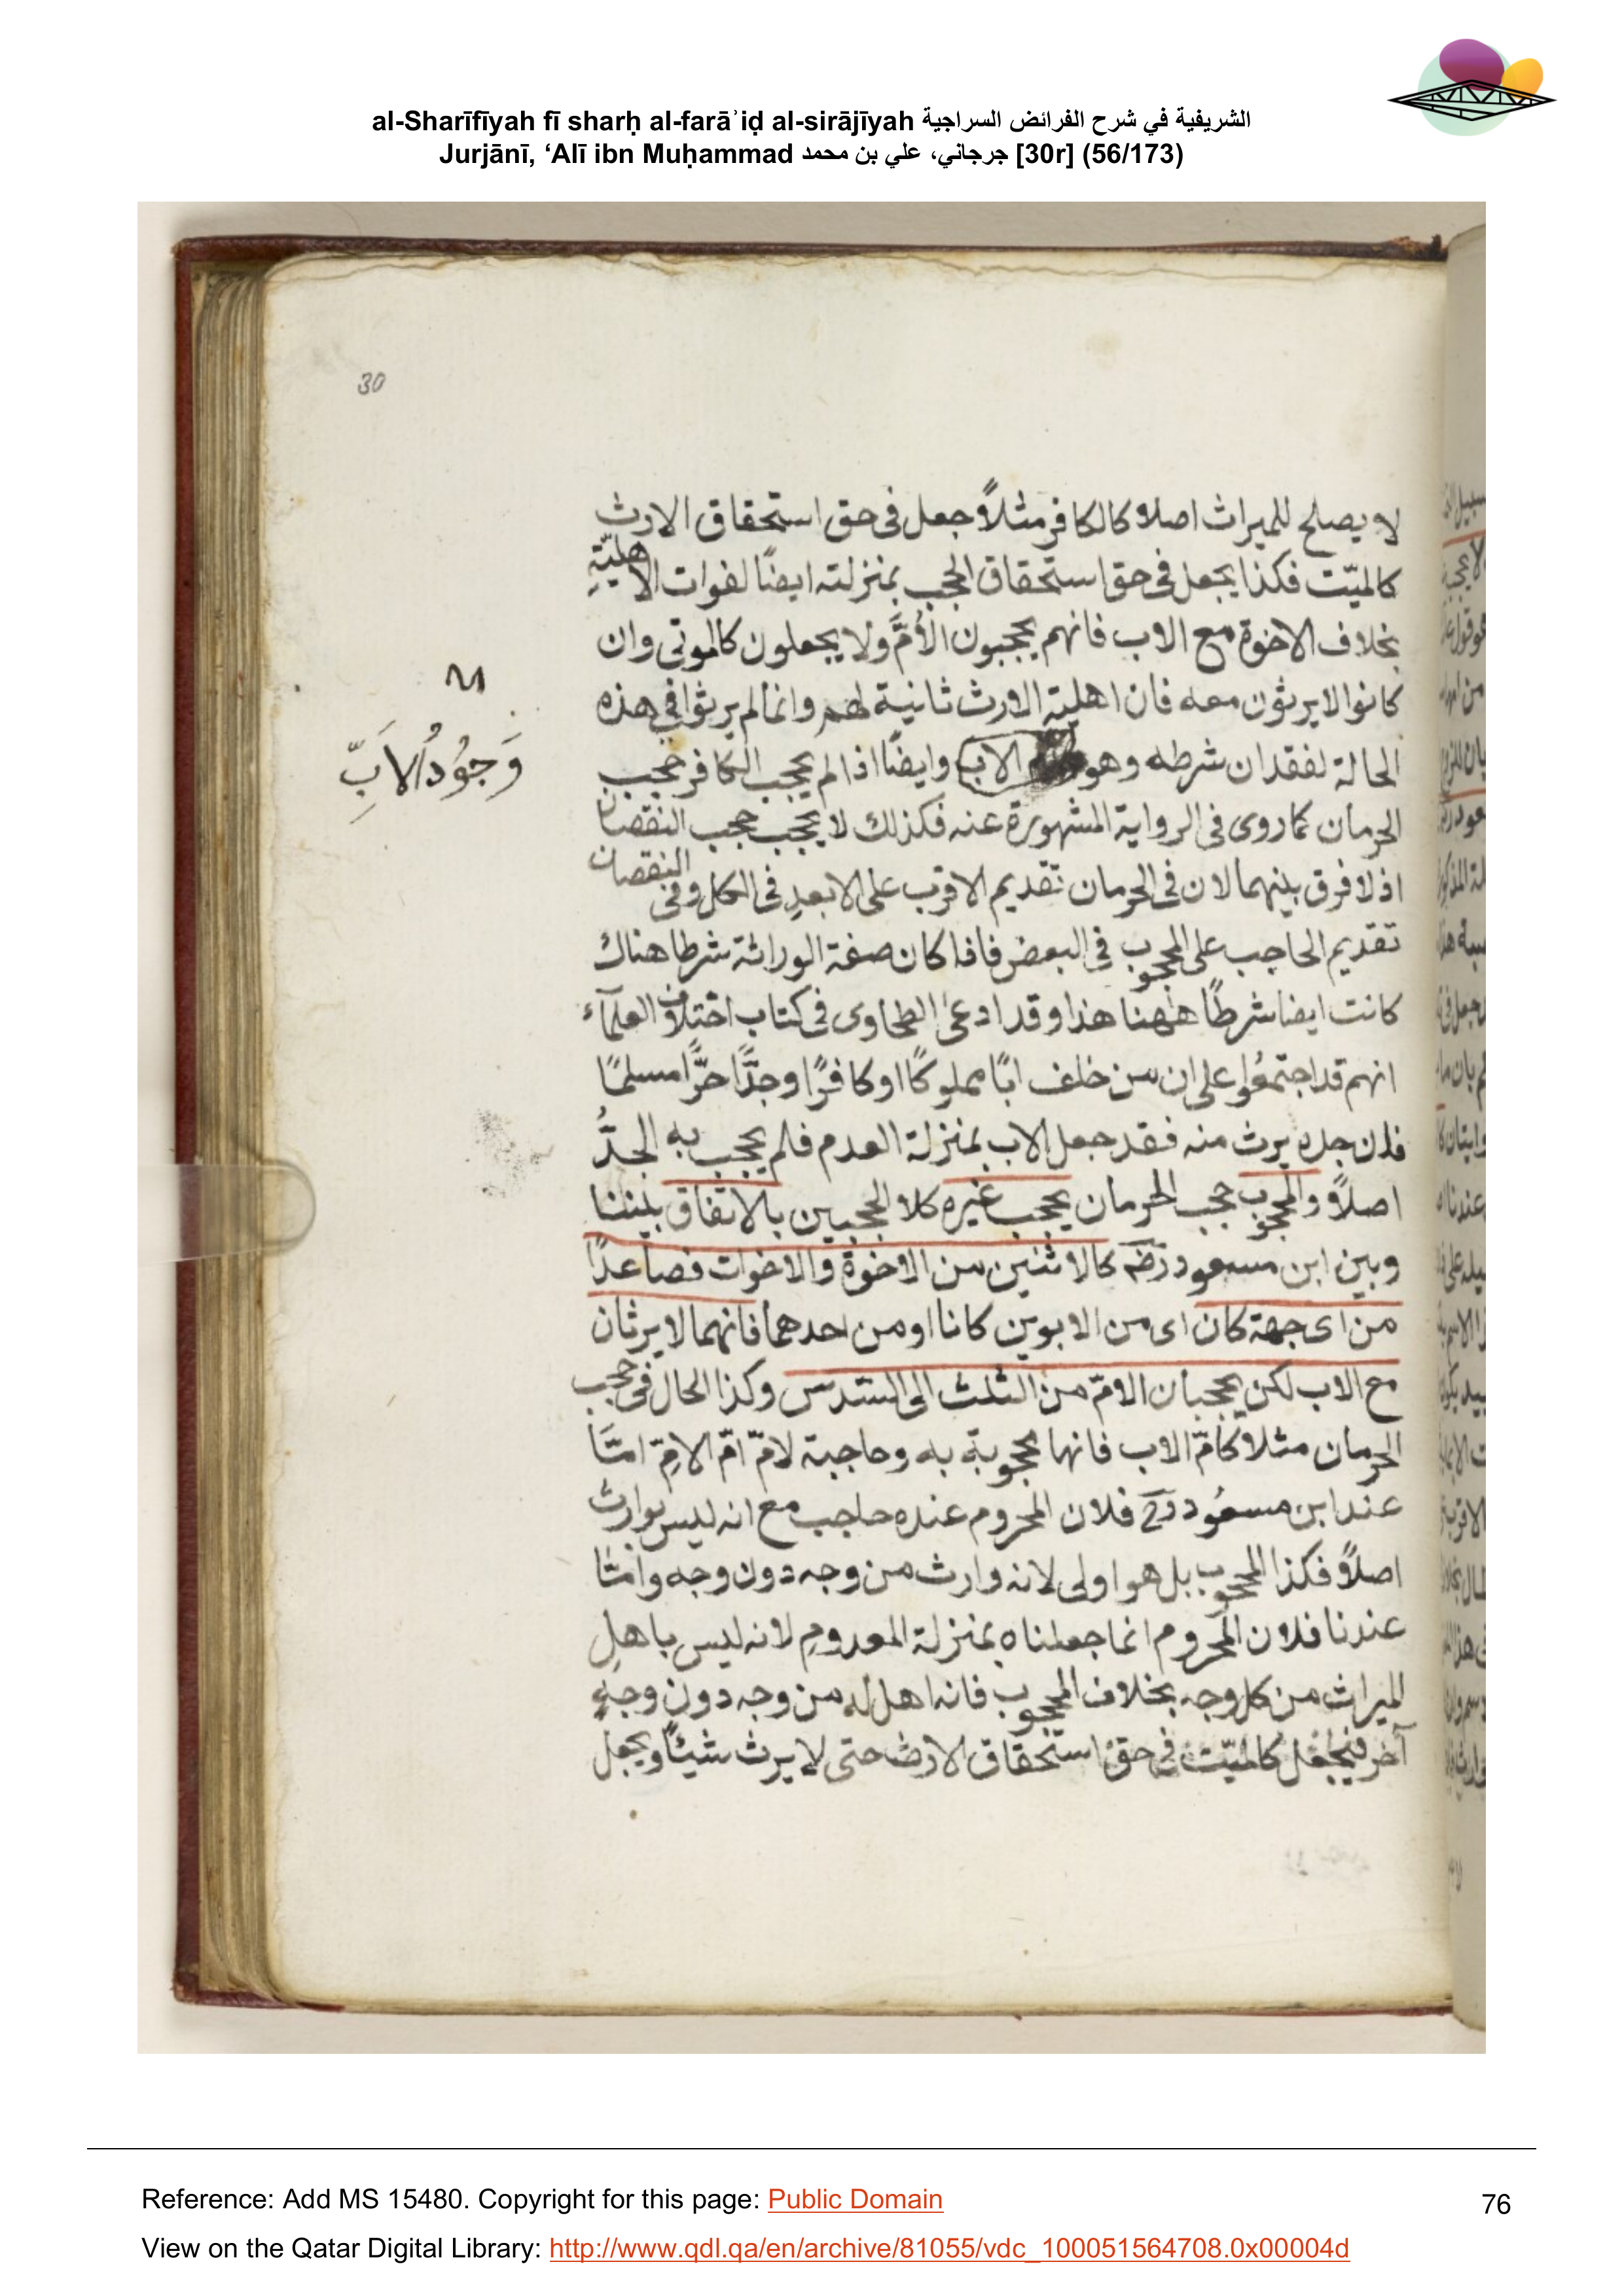 al-Sharīfīyah fī sharḥ al-farāʾiḍ al-sirājīyah الشريفية في شرح الفرائض السراجية
Jurjānī, ‘Alī ibn Muḥammad جرجاني، علي بن محمد [30r] (56/173)
30
لا يصلح للميراث اصلا كالكافر مثلاً جعل فى حق استحقاق الارث
كالميّت فكذا يجعل فى حق استحقاق الحجب بمنزلته ايضًا لفوات الاهليّةِ
بخلاف الاخوة مع الاب فانهم يحجبون الاُمَّ ولا يجعلون كالموتى وان
كانوا لا يرثون معه فان اهلية الارث ثانية لهم وانما لم يرثوا فى هذه
الحالة لفقدان شرطه وهو الاب وايضًا اذا لم يحجب الكافر حجب
وَجُوُدُ الاَبِّ
الحرمان كما روى فى الرواية المشهورة عنه فكذلك لا يحجب حجب النقصان
اذ لا فرق بينهما لان فى الحرمان تقديم الاقرب على الابعدِ فى الكل وفى النقصان
تقديم الحاجب على المحجوب فى البعض فاذا كان صفة الوراثة شرطا هناك
كانت ايضا شرطًا هٰهنا هذا وقد ادعىٰ الطحاوى فى كتاب اختلاف العلمآء
انهم قد اجتمعُوا على ان من خلف ابًا مملوكًا او كافرًا وجدًّا حرًّا مسلمًا
فان جده يرث منه فقد جعل الاب بمنزلة العدم فلم يحجب به الجدُّ
اصلاً والمحجوب حجب الحرمان يحجب غيره كلا الحجبين بالاتفاق بيننا
وبين ابن مسعود رضه كالاثنين من الاخوة والاخوات فصاعدًا
من اى جهة كان اى من الابوين كانا او من احدهما فانهما لا يرثان
مع الاب لكن يحجبان الامّ من الثلث الى السّدس وكذا الحال فى حجب
الحرمان مثلا كامّ الاب فانها محجوبة به وحاجبة لامّ امّ الامِّ امّا
عند ابن مسعُود رح فلان المحروم عنده حاجب مع انه ليس بوارث
اصلاً فكذا المحجوب بل هو اولى لانه وارث من وجه دون وجه وامّا
عندنا فلان المحروم انما جعلناه بمنزلة المعدومِ لانه ليس باهلِ
الميراث من كل وجه بخلاف المحجوب فانه اهل له من وجه دون وجهٍ
آخر فيجعل كالميّت فى حق استحقاق الارث حتى لا يرث شيئًا ويجعل
Reference: Add MS 15480. Copyright for this page: Public Domain
76
View on the Qatar Digital Library: http://www.qdl.qa/en/archive/81055/vdc_100051564708.0x00004d